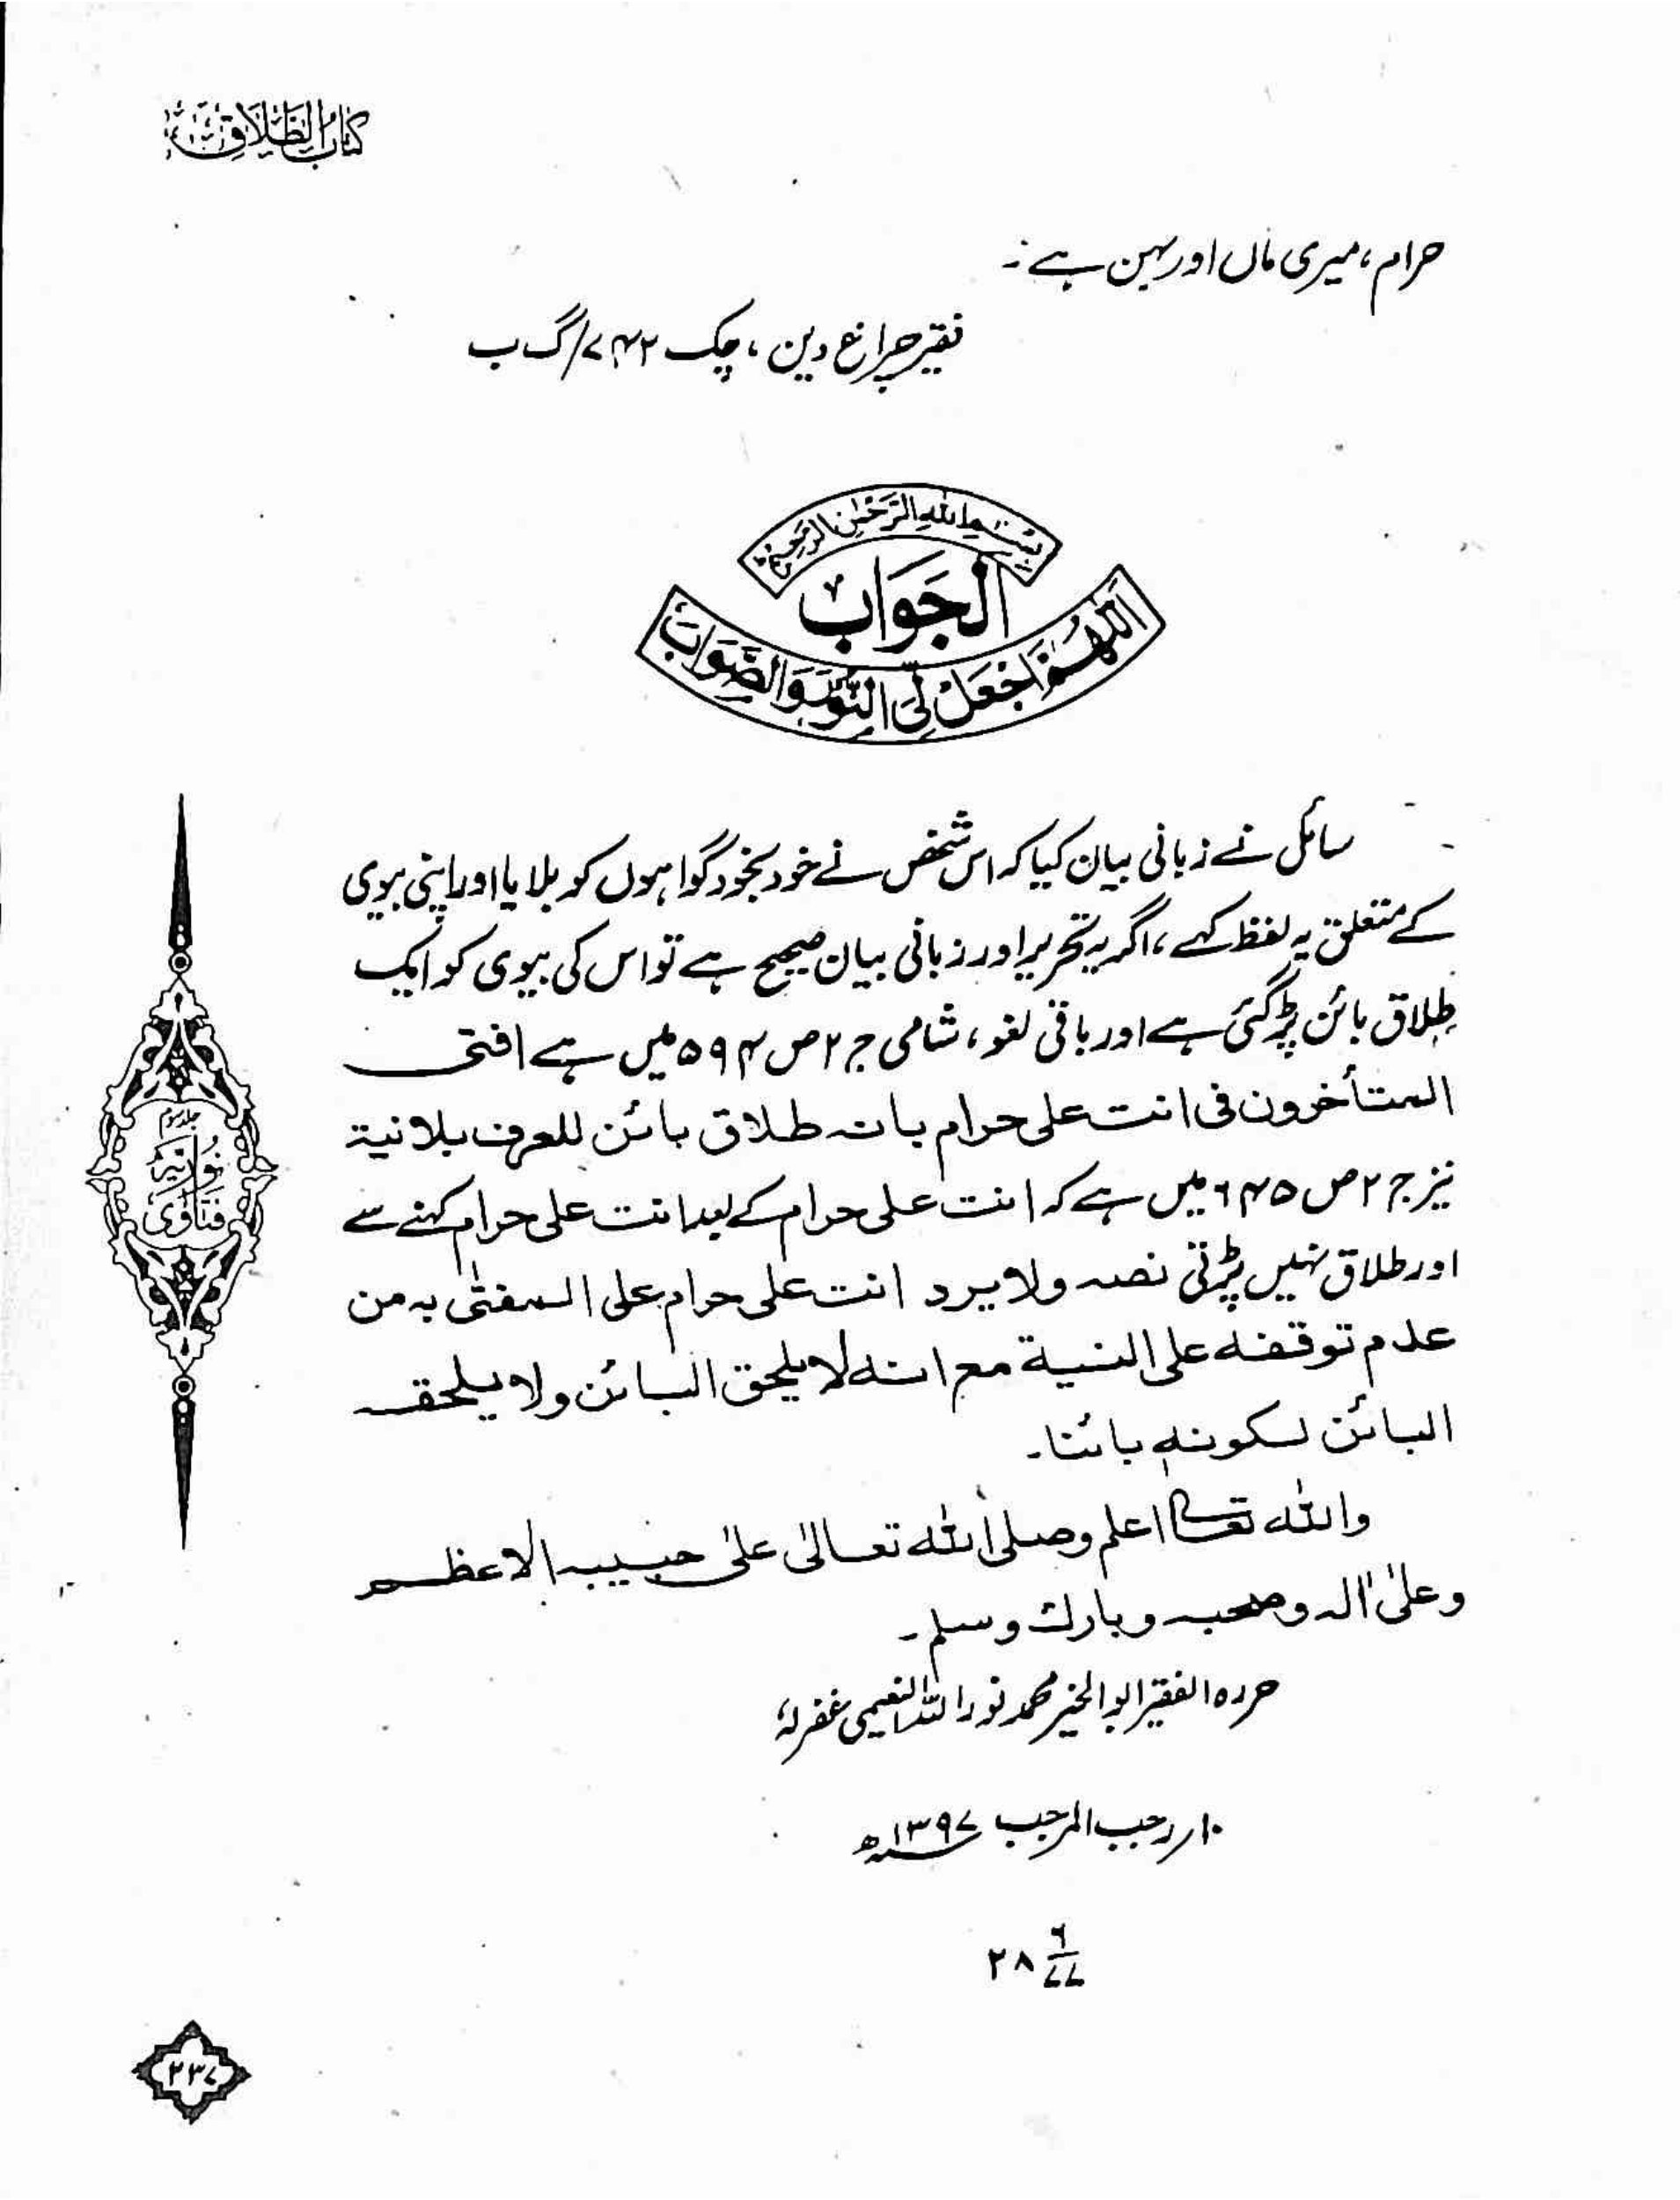 کتاب الطلاق
حرام، میری ماں اور بہن ہے۔
فقیر چراغ دین، چک ۷۴۲/گ ب
بسم اللہ الرحمن الرحیم
الجَوَابُ
اللّٰهُمَّ اجْعَلْ لِّیَ النُّوْرَ وَالصَّوَابَ
سائل نے زبانی بیان کیا کہ اس شخص نے خود بخود گواہوں کو بلایا اور اپنی بیوی
کے متعلق یہ لفظ کہے، اگر یہ تحریر اور زبانی بیان صحیح ہے تو اس کی بیوی کو ایک
طلاق بائن پڑ گئی ہے اور باقی لغو، شامی ج ۲ ص ۵۹۴ میں ہے افتی
المتأخرون فی انت علی حرام بانہ طلاق بائن للعرف بلا نیة
نیز ج ۲ ص ۶۴۵ میں ہے کہ انت علی حرام کے بعد انت علی حرام کہنے سے
اور طلاق نہیں پڑتی نصہ ولا یرد انت علی حرام علی المفتٰی بہ من
عدم توقفہ علی النیة مع انہ لا یلحق البائن ولا یلحقہ
البائن لکونہ بائنا۔
واللہ تعالیٰ اعلم وصلی اللہ تعالیٰ علیٰ حبیبہ الاعظم
وعلیٰ اٰلہ وصحبہ وبارك وسلم۔
حررہ الفقیر ابوالخیر محمد نور اللہ النعیمی غفرلہٗ
۱۰ر رجب المرجب ۱۳۹۷ھ
۲۸ ۶/۷۷
جلد سوم
نوریہ
فتاوی
۲۳۷